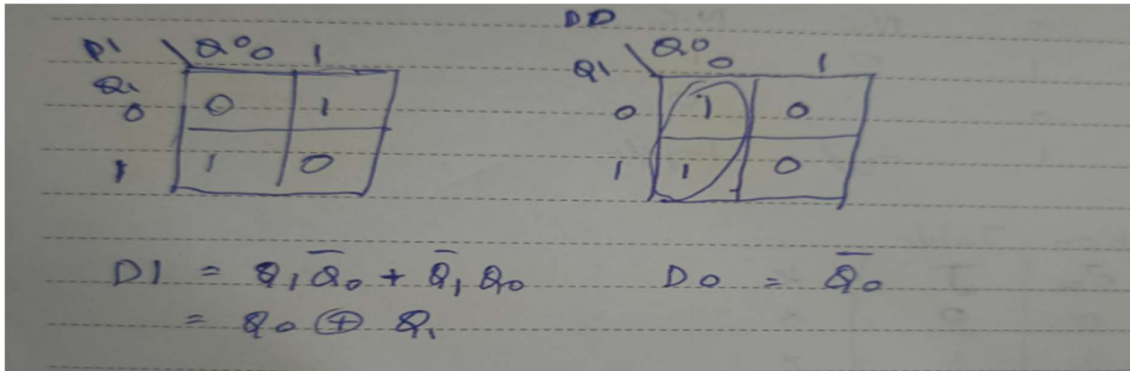 D1 Q0 0 1
Q1
0 0 1
1 1 0
DD
Q1 Q0 0 1
0 1 0
1 1 0
D1 = Q1Q̅0 + Q̅1Q0
= Q0 ⊕ Q1
D0 = Q̅0